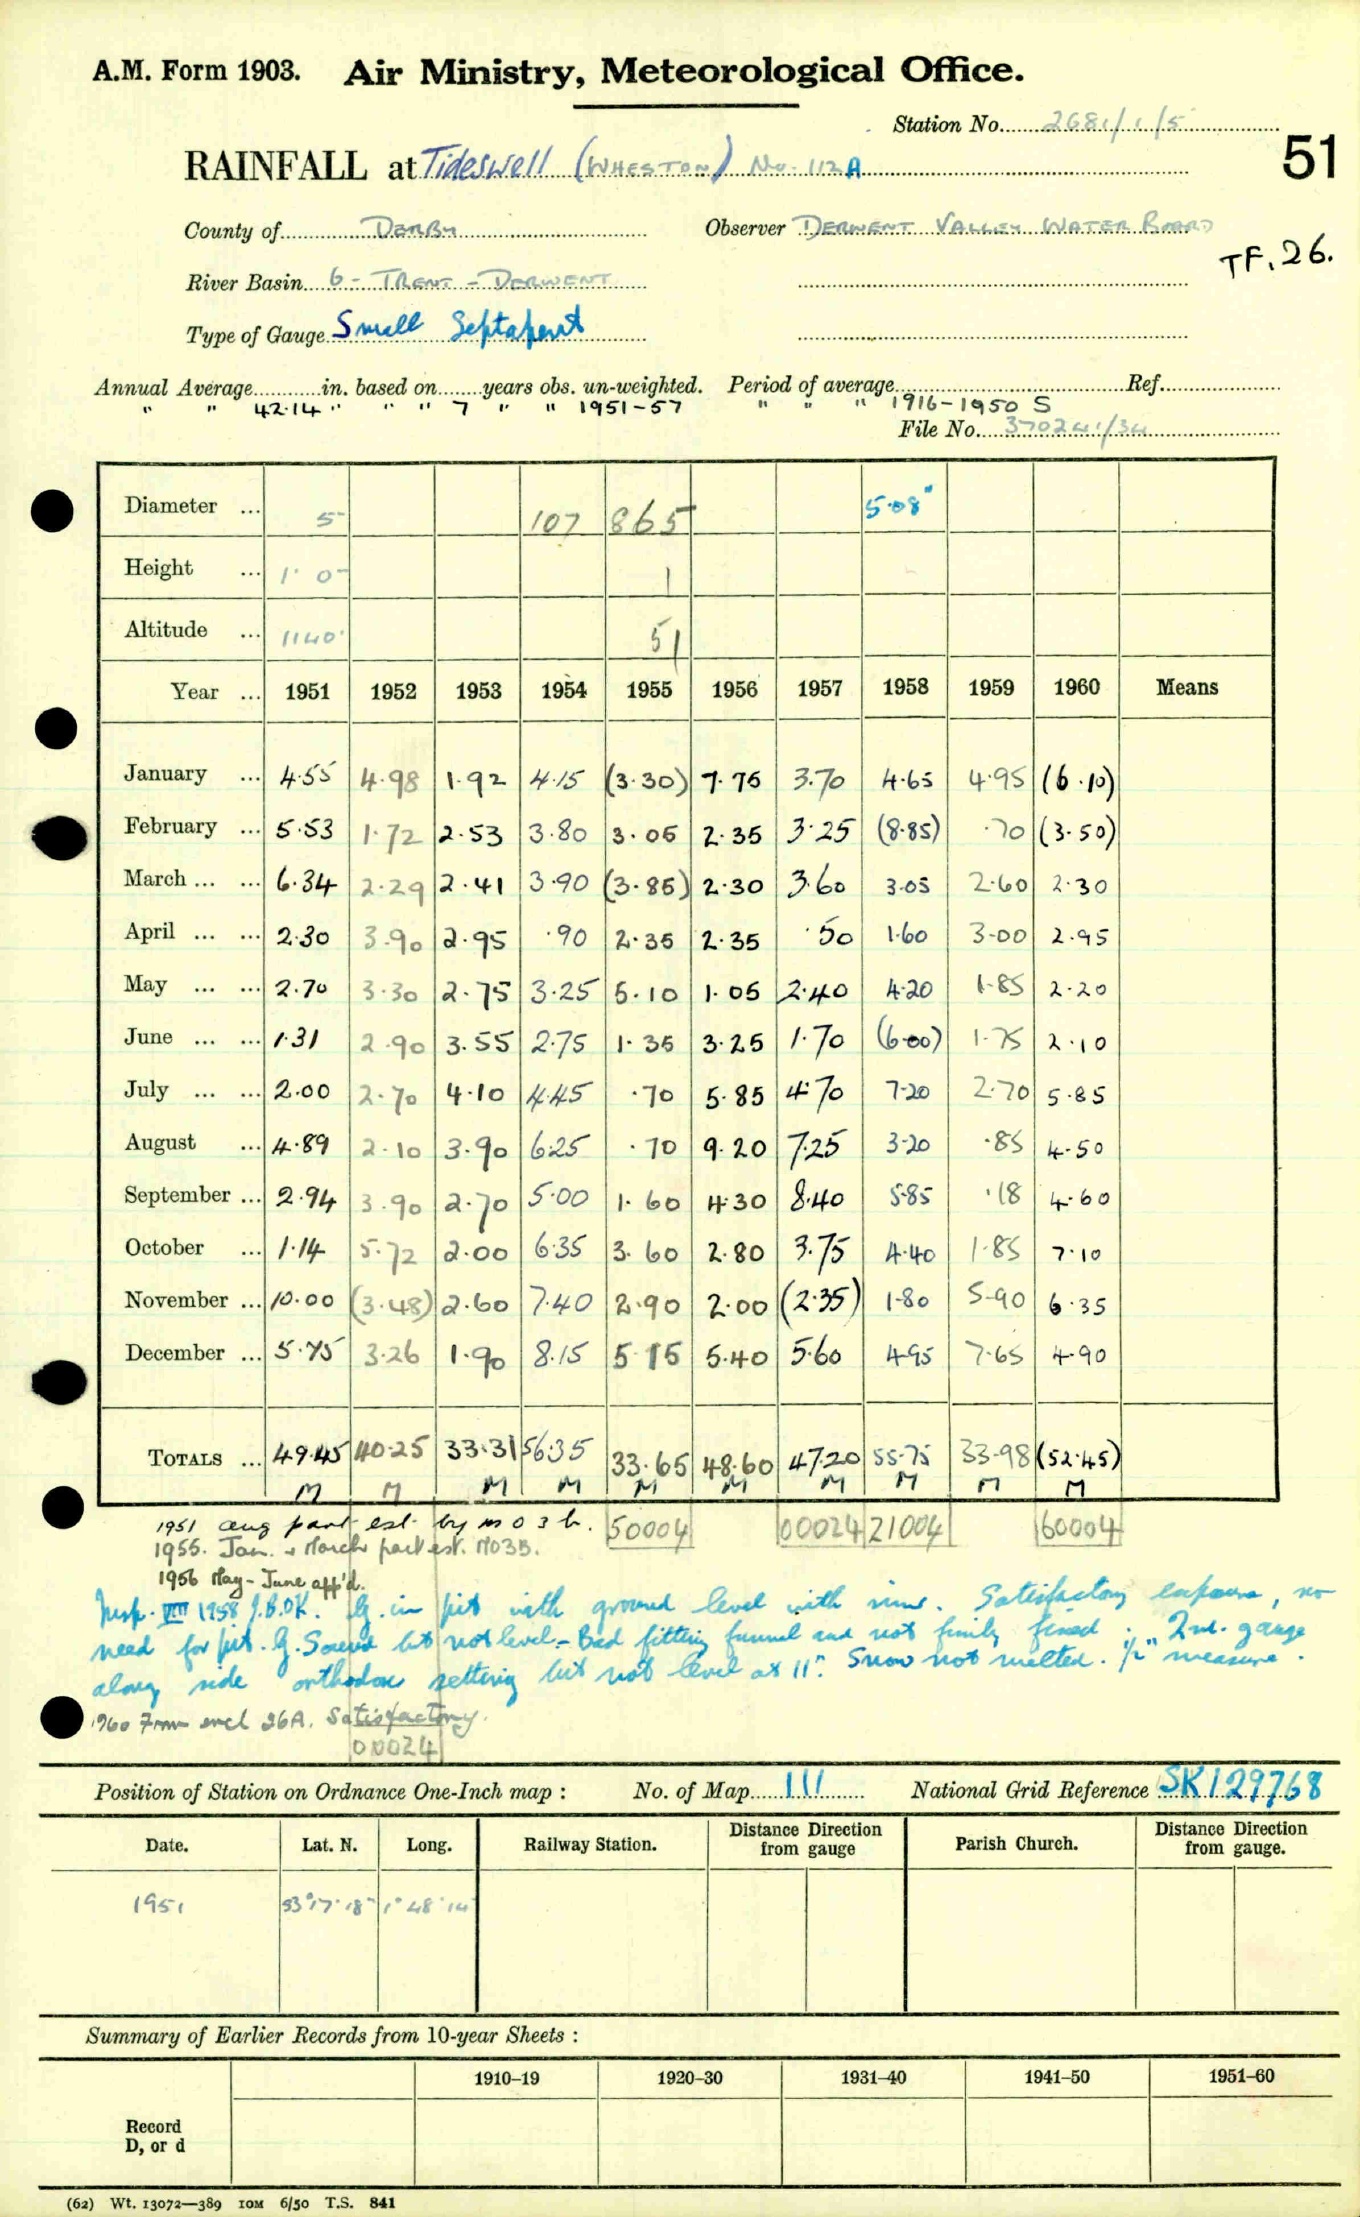 A.M. Form 1903. Air Ministry, Meteorological Office.
Station No. 2681/1/5
51
RAINFALL at Tideswell (WHESTON) No. 112A
County of DERBY Observer DERWENT VALLEY WATER BOARD
TF.26.
River Basin 6 - TRENT - DERWENT
Type of Gauge Small Septapent
Annual Average in. based on years obs. un-weighted. Period of average Ref.
" " 42.14 " " " 7 " " 1951-57 " " " 1916-1950 S
File No. 370241/34
Diameter ... 5" 107 865 5.08"
Height ... 1' 0" 1
Altitude ... 1140' 51
Year ... 1951 1952 1953 1954 1955 1956 1957 1958 1959 1960 Means
January ... 4.55 4.98 1.92 4.15 (3.30) 7.75 3.70 4.65 4.95 (6.10)
February ... 5.53 1.72 2.53 3.80 3.05 2.35 3.25 (8.85) .70 (3.50)
March ... ... 6.34 2.29 2.41 3.90 (3.85) 2.30 3.60 3.05 2.60 2.30
April ... ... 2.30 3.90 2.95 .90 2.35 2.35 .50 1.60 3.00 2.95
May ... ... 2.70 3.30 2.75 3.25 5.10 1.05 2.40 4.20 1.85 2.20
June ... ... 1.31 2.90 3.55 2.75 1.35 3.25 1.70 (6.00) 1.75 2.10
July ... ... 2.00 2.70 4.10 4.45 .70 5.85 4.70 7.20 2.70 5.85
August ... 4.89 2.10 3.90 6.25 .70 9.20 7.25 3.20 .85 4.50
September ... 2.94 3.90 2.70 5.00 1.60 4.30 8.40 5.85 .18 4.60
October ... 1.14 5.72 2.00 6.35 3.60 2.80 3.75 4.40 1.85 7.10
November ... 10.00 (3.48) 2.60 7.40 2.90 2.00 (2.35) 1.80 5.90 6.35
December ... 5.75 3.26 1.90 8.15 5.15 5.40 5.60 4.95 7.65 4.90
TOTALS ... 49.45 40.25 33.31 56.35 33.65 48.60 47.20 55.75 33.98 (52.45)
M M M M M M M M M M
1951 aug part est by m o 3 b. 50004 00024 21004 60004
1955. Jan. & March part est. MO3B.
1956 May - June app'd.
Insp. VIII 1958 J.B.OK. G. in pit with ground level with rim. Satisfactory exposure, no
need for pit. G. Sound but not level - Bad fitting funnel and not firmly fixed. 2nd. gauge
along side orthodox setting but not level at 11". Snow not melted. 1/2" measure.
1960 From encl 26A. Satisfactory.
00024
Position of Station on Ordnance One-Inch map : No. of Map 111 National Grid Reference SK129768
Date. Lat. N. Long. Railway Station. Distance Direction from gauge Parish Church. Distance Direction from gauge.
1951 53° 17' 18" 1° 48' 14"
Summary of Earlier Records from 10-year Sheets :
1910–19 1920–30 1931–40 1941–50 1951–60
Record
D, or d
(62) Wt. 13072—389 10M 6/50 T.S. 841